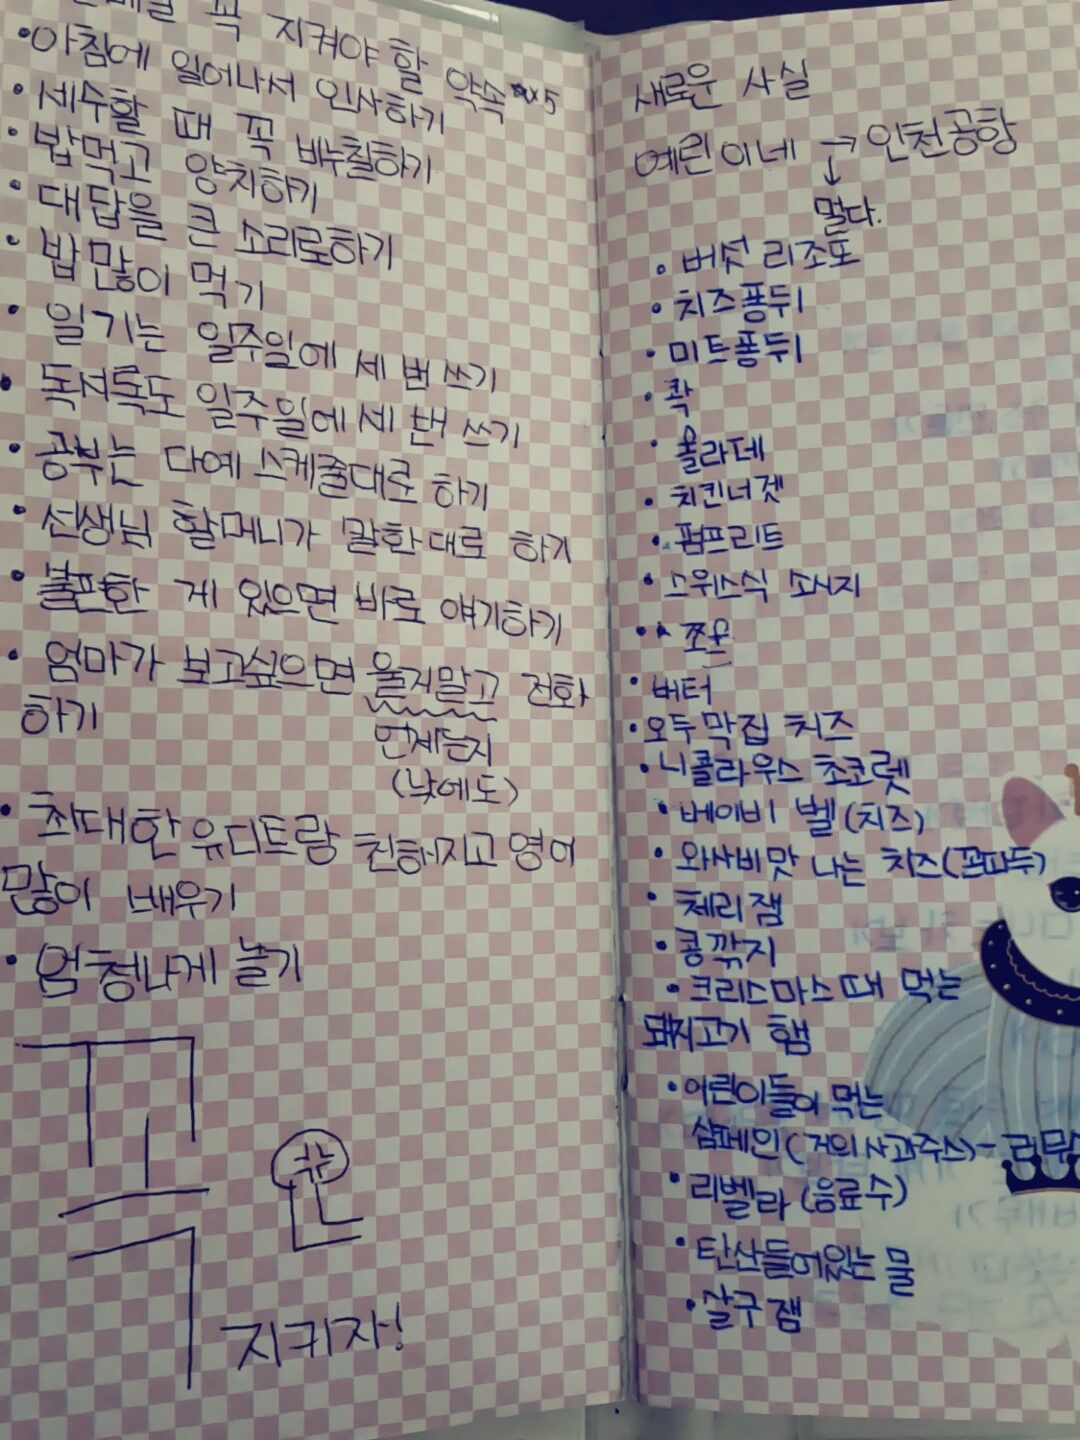 꼭 지켜야 할 약속 x5
•아침에 일어나서 인사하기
•세수할 때 꼭 비누칠하기
•밥먹고 양치하기
•대답을 큰 소리로하기
•밥많이 먹기
•일기는 일주일에 세 번 쓰기
•독서록도 일주일에 세 번 쓰기
•공부는 다예 스케줄대로 하기
•선생님 할머니가 말한대로 하기
•불편한 게 있으면 바로 얘기하기
•엄마가 보고싶으면 울지말고 전화
하기
언제든지
(낮에도)
•최대한 유디트랑 친해지고 영어
많이 배우기
•엄청나게 놀기
꼭
꾹
지키자!
새로운 사실
예린이네 → 인천공항
↓
멀다.
•버섯 리조또
•치즈퐁뒤
•미트퐁뒤
•콱
•올라데
•치킨너겟
•폼프리트
•스위스식 소시지
•쪼프
•버터
•오두막집 치즈
•니콜라우스 초코렛
•베이비 벨(치즈)
•와사비맛 나는 치즈(꼰따두)
•체리잼
•콩깎지
•크리스마스 때 먹는
돼지고기 햄
•어린이들이 먹는
샴페인(거의 사과주스)-리무
•리벨라(음료수)
•탄산들어있는 물
•살구잼